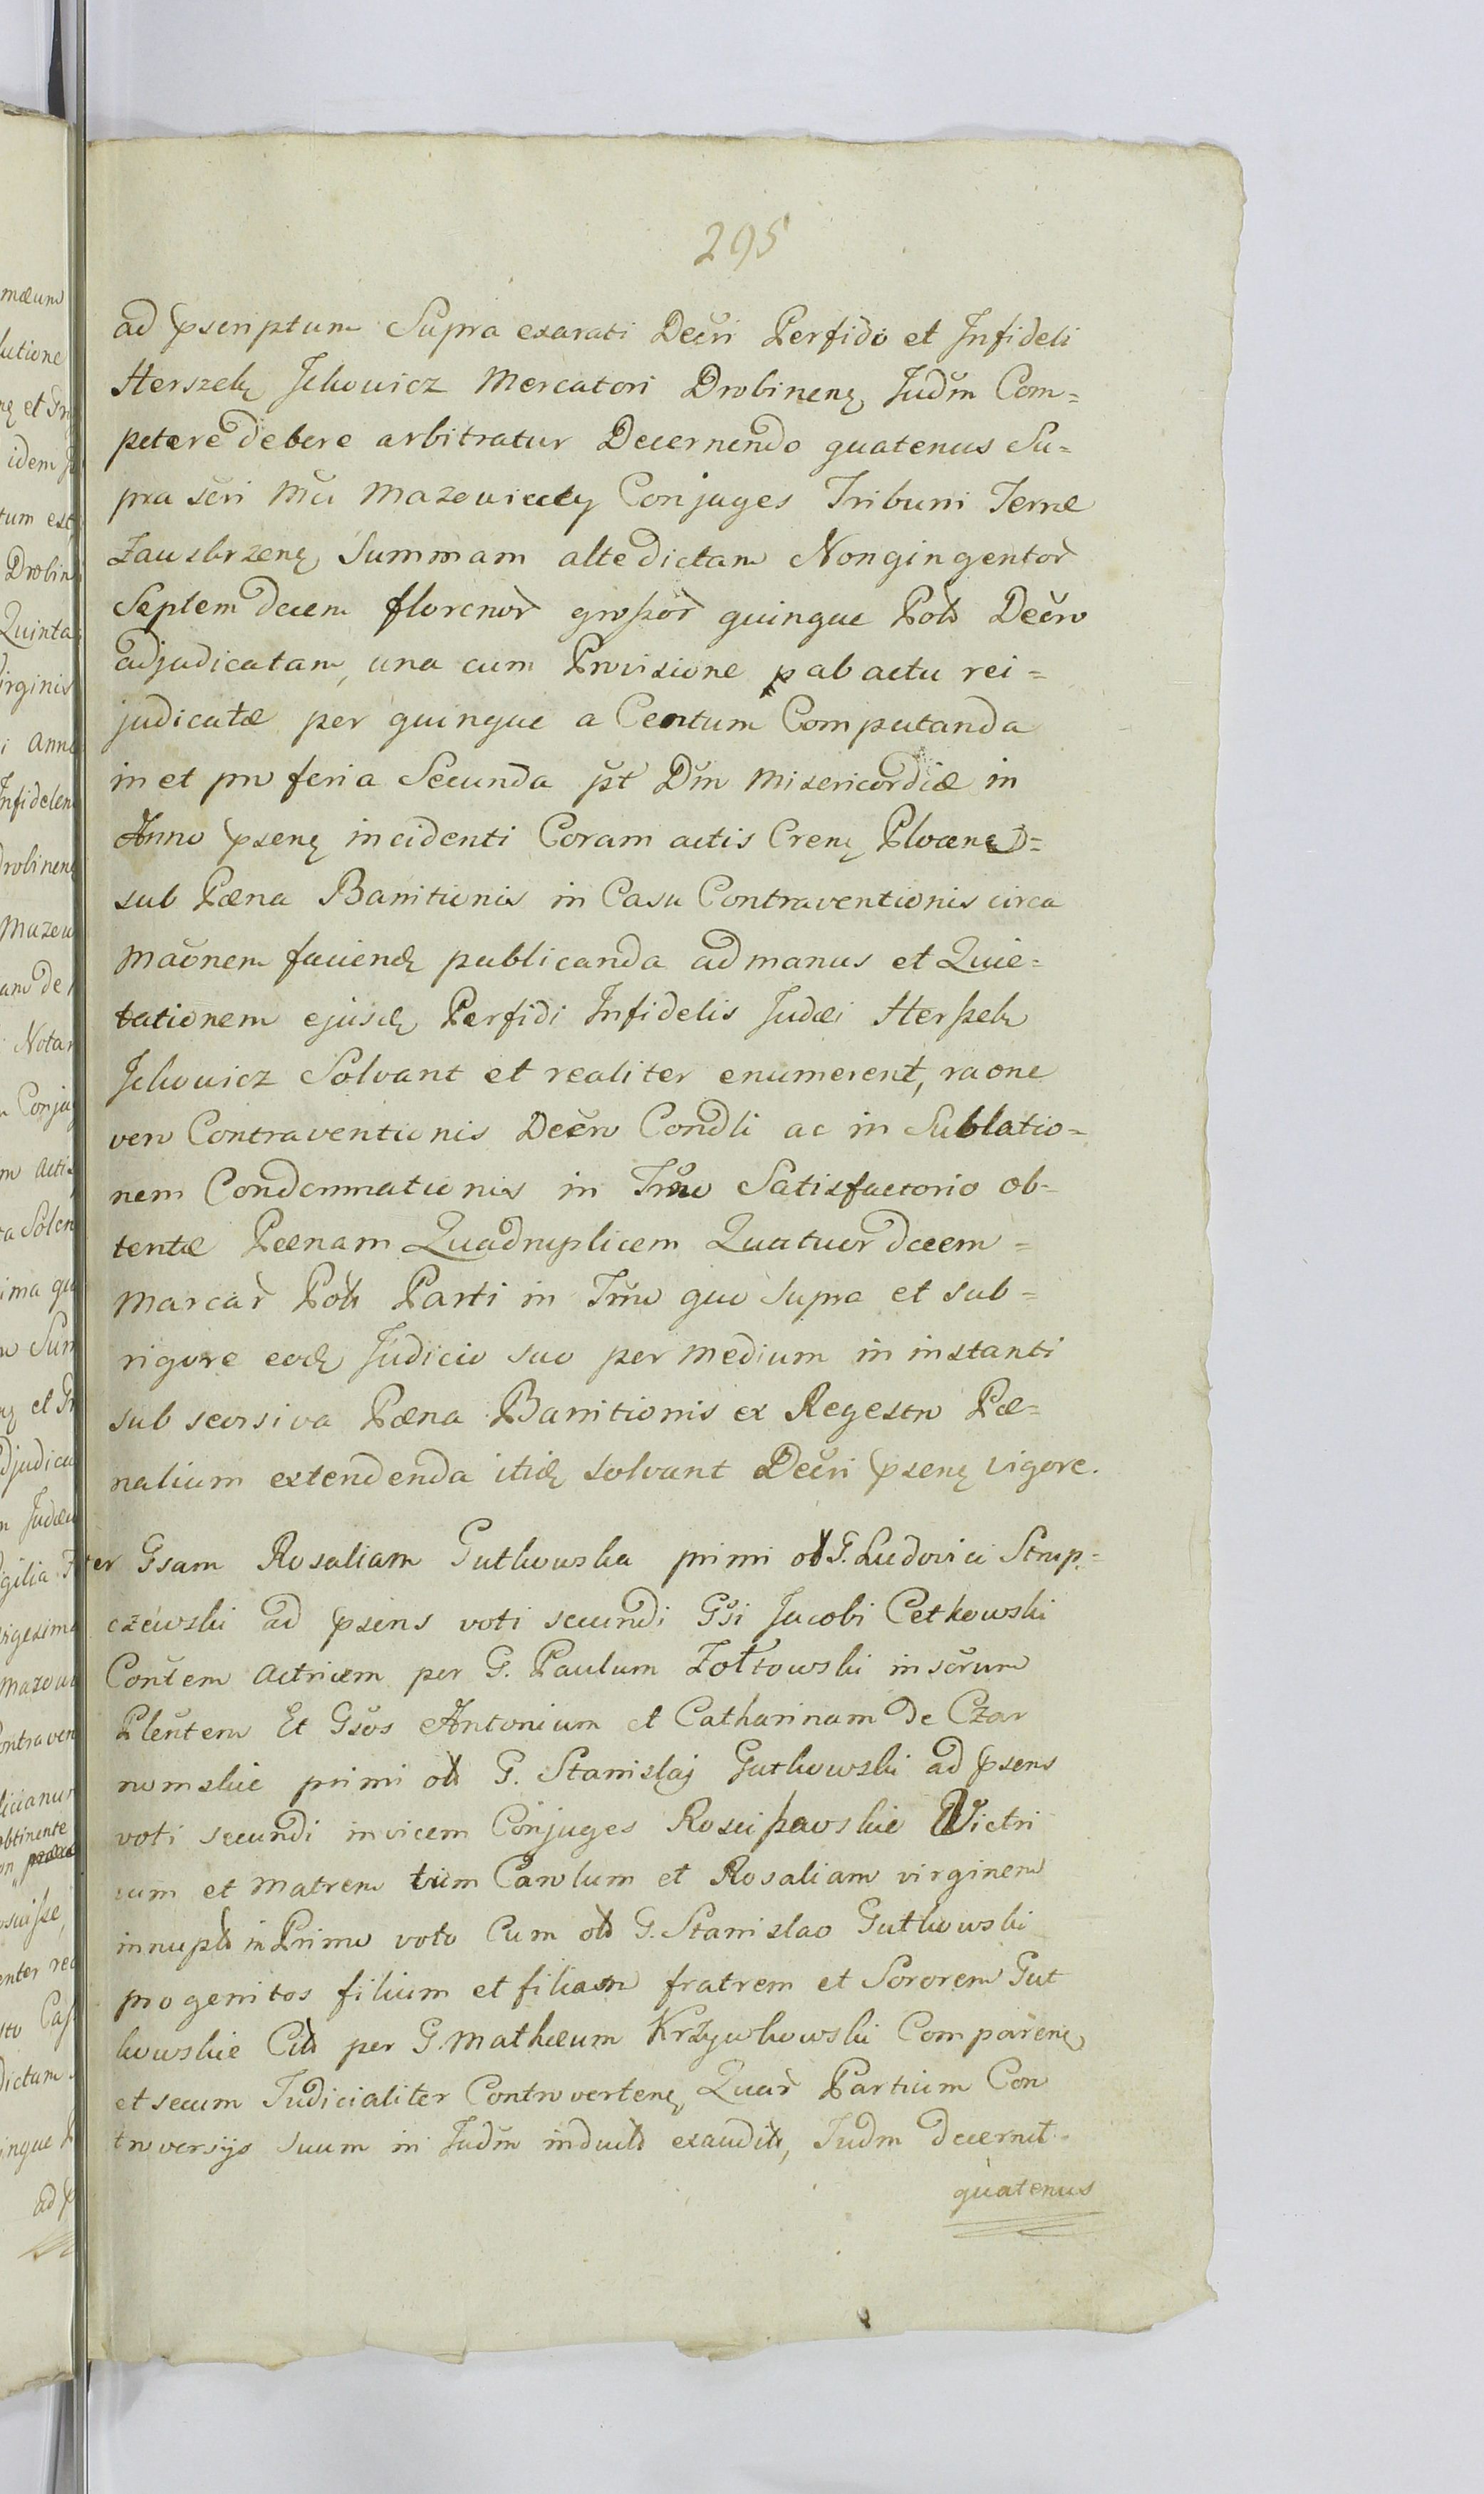 295
ad pscriptum Supra exarati Decri Perfido et Infideli
Herszek Ickowicz Mercatori Drobinen Judm Com=
petere debere arbitratur Decernendo quatenus Su=
pra scri Mci Mazowieccy Conjuges Tribuni Terræ
Zawskrzen Summam altedictam Nongingentor
Septemdecem florenor großor quinque Pol Decro
adjudicatam, una cum Provisione ab actu rei=
judicatæ per quinque a Centum Computanda
in et pro feria Secunda pt Dm Misericordiæ in
Anno psen incidenti Coram actis Cren Plocen
sub Pæna Banitionis in Casu Contraventionis circa
maonem faciend publicanda ad manus et Quie=
tationem ejusd Perfidi Infidelis Judæi Herßek
Ickowicz Solvant et realiter enumerent, raone
vero Contraventionis Decro Condli ac in Sublatio=
nem Condemnationis in Tmo Satisfactorio ob=
tentæ Pœnam Quadruplicem Quatuordecem=
Marcar Pol Parti in Tmo quo supra et sub=
rigore eod Judicio suo per medium in instanti
sub seorsiva Pæna Banitionis ex Regestro Pæ=
nalium extendenda itid solvant Decri psen vigore.
ter Gsam Rosaliam Gutkowska primi ol G. Ludovici Strup=
czewski ad psens voti secundi Gsi Jacobi Cetkowski
Contem Actricem per G. Paulum Zołtowski in scrum
Plentem Et Gsos Antonium et Catharinam de Czar
nomskie primi ol G. Stanislaj Gutkowski ad psens
voti secundi invicem Conjuges Rosciszewskie Victri
cum et Matrem tum Carolum et Rosaliam virginem
innupt in Primo voto Cum ol G. Stanislao Gutkowski
progenitos filium et filiam fratrem et Sororem Gut
kowskie Cit per G. Mathæum Krzywkowski Comparen
et secum Judicialiter Controverten Quar Partium Con
troversijs suum in Judm induct exaudit, Judm decernit
quatenus